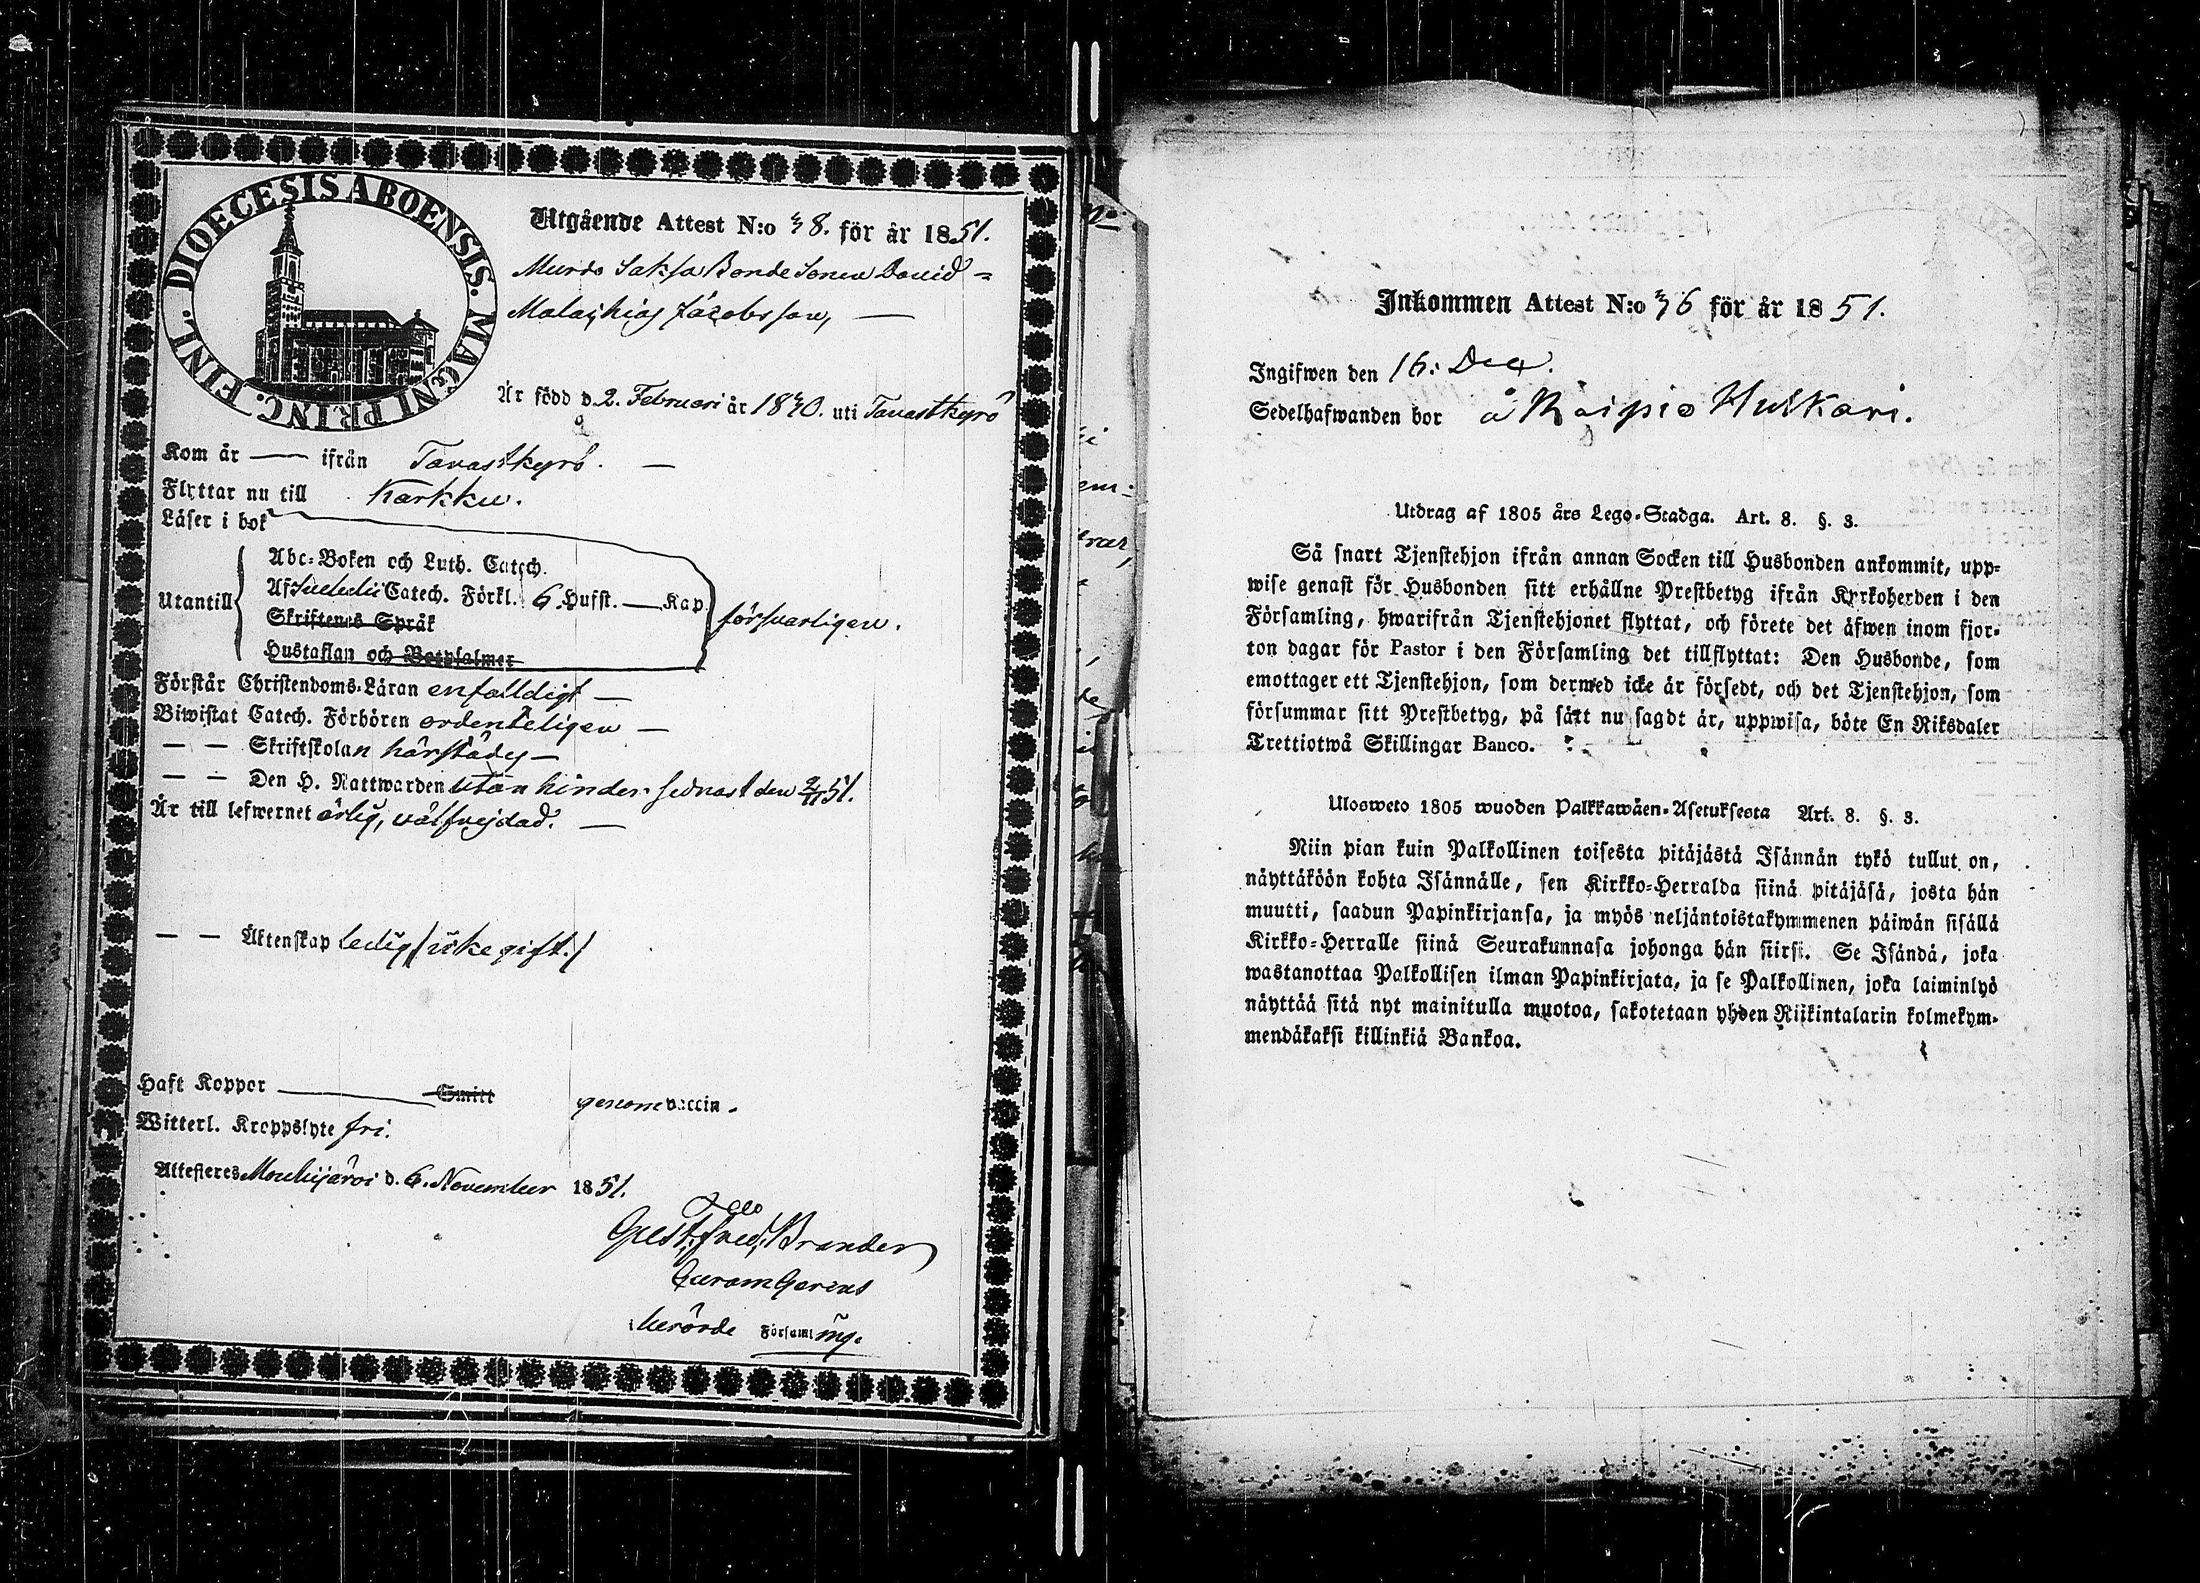 DIOECESIS ABOENSIS. MAGNI PRINC. FINL.
Utgående Attest N:o 38. för år 1851.
Murdo Saksa Bonde Sonen David =
Malachias Jacobsson, —
Är född d. 2. Februari år 1830. uti Tavastkyrö
Kom år — ifrån Tavastkyrö. —
Flyttar nu till Karkku.
Läser i bok
Abc-Boken och Luth. Catech.
Utantill Af Svebelii Catech. Förkl. 6. Hufst. — Kap. försvarligen.
Skriftenes Språk
Hustaflan och Botpsalmer
Förstår Christendoms-Läran enfaldigt —
Biwistat Catech. Förhören ordenteligen —
— — Skriftskolan härstädes —
— — Den H. Nattwarden utan hinder sednast den 2/11 51.
Är till lefwernet ärlig, välfrejdad. —
— — Äktenskap ledig /: icke gift :/
Haft Koppor — Smitt genom vaccin.
Witterl. Kroppslyte fri.
Attesteras Mouhijärvi d. 6. November 1851.
Gust. Fred. Brander
Curam Gerens
berörde Församling.
Inkommen Attest N:o 36 för år 1851.
Ingifwen den 16: Dec.
Sedelhafwanden bor å Raipio Hulkari.
Utdrag af 1805 års Lego-Stadga. Art. 8. §. 3.
Så snart Tjenstehjon ifrån annan Socken till Husbonden ankommit, upp-
wise genast för Husbonden sitt erhållne Prestbetyg ifrån Kyrkoherden i den
Församling, hwarifrån Tjenstehjonet flyttat, och förete det äfwen inom fjor-
ton dagar för Pastor i den Församling det tillflyttat: Den Husbonde, som
emottager ett Tjenstehjon, som dermed icke är försedt, och det Tjenstehjon, som
försummar sitt Prestbetyg, på sätt nu sagdt är, uppwisa, böte En Riksdaler
Trettiotwå Skillingar Banco.
Ulosweto 1805 wuoden Palkkawäen-Asetuksesta Art. 8. §. 3.
Niin pian kuin Palkollinen toisesta pitäjästä Isännän tykö tullut on,
näyttäköön kohta Isännälle, sen Kirkko-Herralda siinä pitäjäsä, josta hän
muutti, saadun Papinkirjansa, ja myös neljäntoistakymmenen päiwän sisällä
Kirkko-Herralle siinä Seurakunnasa johonga hän siirsi. Se Isändä, joka
wastanottaa Palkollisen ilman Papinkirjata, ja se Palkollinen, joka laiminlyö
näyttää sitä nyt mainitulla muotoa, sakotetaan yhden Riikintalarin kolmekym-
mendäkaksi killinkiä Bankoa.